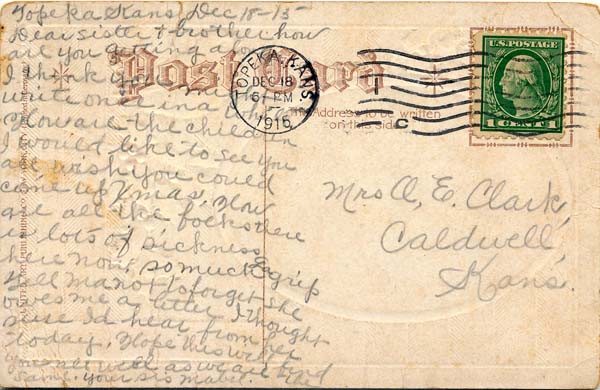 Topeka Kans Dec 18-15
Dear sister & brother how
are you getting along
I think you might
write once in a
How are the children
I would like to see you
all wish you could
come up Xmas, How
are all the folks there
is lots of sickness
here now, so much grip
Tell ma not to forget she
owes me a letter I thought
maybe I'd hear from her
today. Hope this will
find you well as we are
Same. your sis Mabel.
Post Card
The Address to be written
on this side
TOPEKA, KANS.
DEC 18
6 PM
1915
C
U.S. POSTAGE
1 CENT 1
Mrs A, E. Clark,
Caldwell,
Kans.